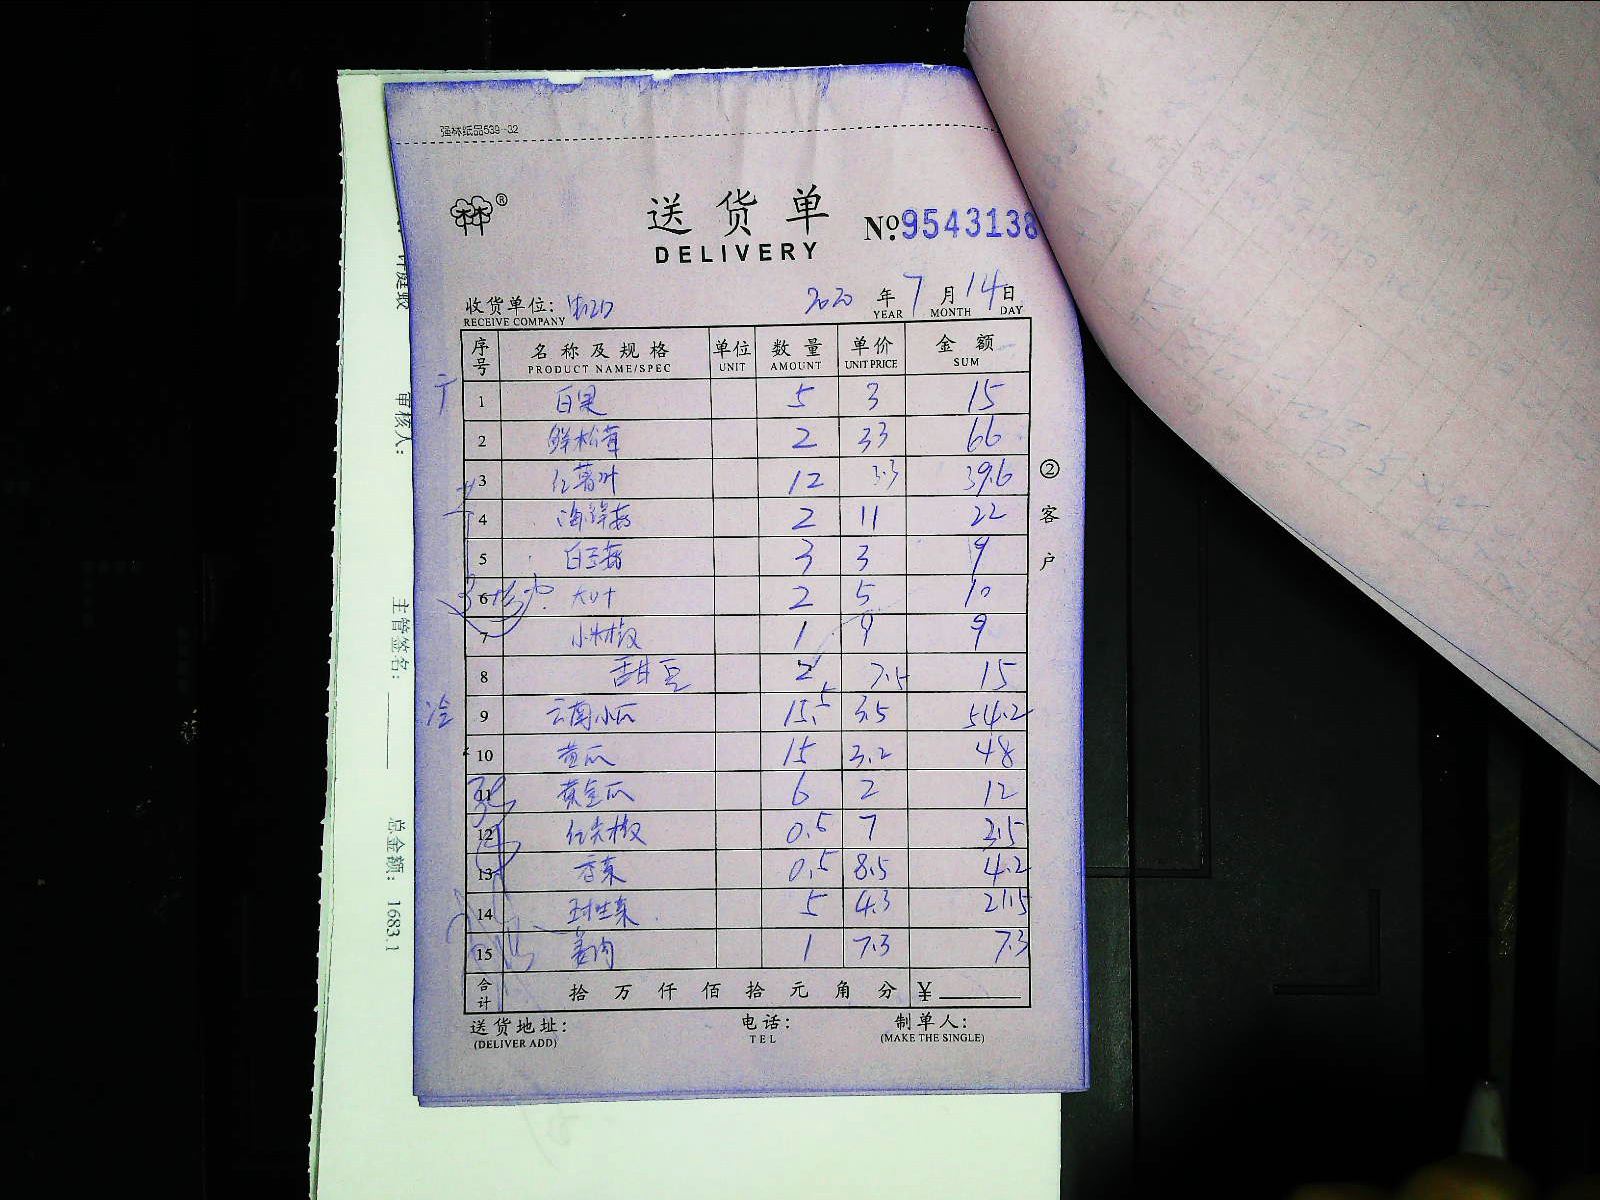 强林纸品539-32
®
送货单
№9543138
DELIVERY
收货单位: 2020 年 7 月 14 日
RECEIVE COMPANY YEAR MONTH DAY
序号 名称及规格 单位 数量 单价 金额
PRODUCT NAME/SPEC UNIT AMOUNT UNIT PRICE SUM
1 白果 5 3 15
2 鲜松茸 2 33 66
3 红薯叶 12 3.3 39.6
4 海鲜菇 2 11 22
5 白玉菇 3 3 9
6 2 5 10
7 小米椒 1 9 9
8 甜豆 2 7.5 15
9 云南小瓜 15.5 3.5 54.2
10 黄瓜 15 3.2 48
11 黄金瓜 6 2 12
12 红尖椒 0.5 7 3.5
13 香菜 0.5 8.5 4.2
14 生菜 5 4.3 21.5
15 姜肉 1 7.3 7.3
合计 拾 万 仟 佰 拾 元 角 分 ¥
送货地址: 电话: 制单人:
(DELIVER ADD) TEL (MAKE THE SINGLE)
②客户
冷
审核人:
主管签名:
总金额: 1683.1